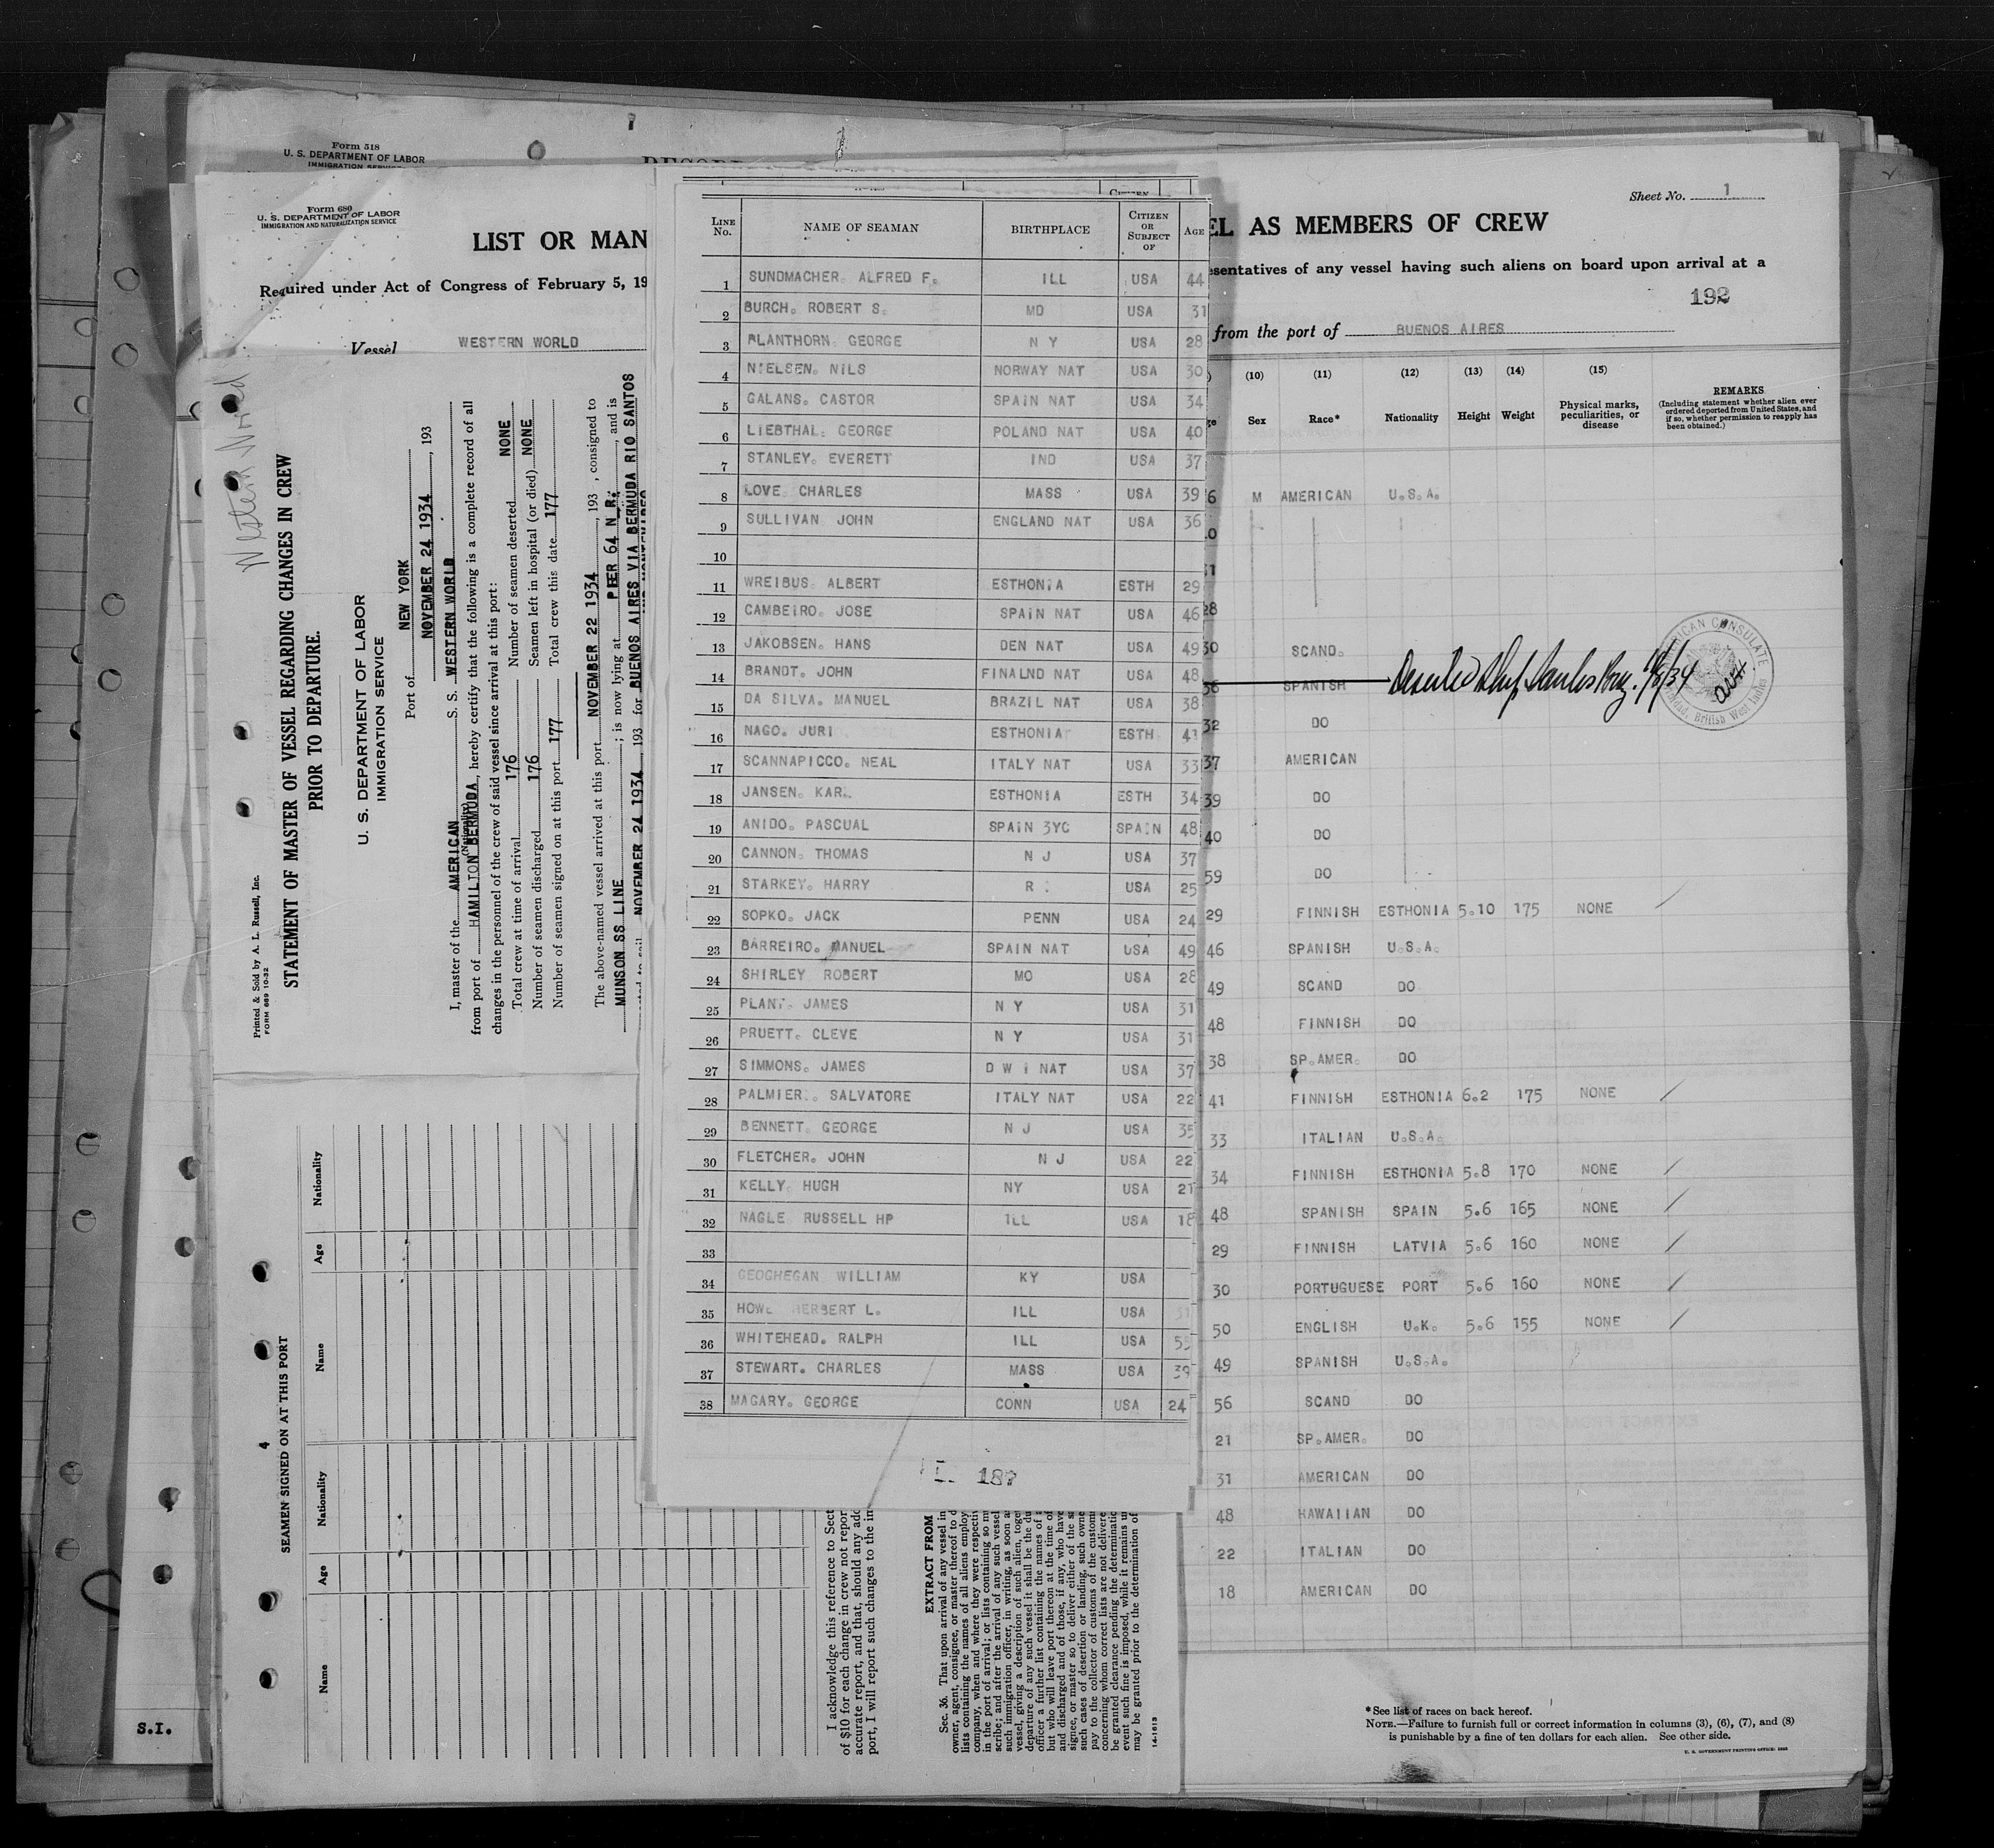 Form 518
U. S. DEPARTMENT OF LABOR
IMMIGRATION SERVICE
Form 680
U. S. DEPARTMENT OF LABOR
IMMIGRATION AND NATURALIZATION SERVICE
LIST OR MAN
Required under Act of Congress of February 5, 19
Vessel WESTERN WORLD
Western World
Printed & Sold by A. L. Russell, Inc.
FORM 689 10-32
STATEMENT OF MASTER OF VESSEL REGARDING CHANGES IN CREW
PRIOR TO DEPARTURE.
U. S. DEPARTMENT OF LABOR
IMMIGRATION SERVICE
Port of NEW YORK
NOVEMBER 24 1934, 193
I, master of the AMERICAN S. S. WESTERN WORLD
(Nationality)
from port of HAMILTON BERMUDA, hereby certify that the following is a complete record of all
changes in the personnel of the crew of said vessel since arrival at this port:
Total crew at time of arrival 176 Number of seamen deserted NONE
Number of seamen discharged 176 Seamen left in hospital (or died) NONE
Number of seamen signed on at this port 177 Total crew this date 177
The above-named vessel arrived at this port NOVEMBER 22 1934, 193 , consigned to
MUNSON SS LINE ; is now lying at PIER 64 N.R. , and is
NOVEMBER 24 1934 193 for BUENOS AIRES VIA BERMUDA RIO SANTOS
4
SEAMEN SIGNED ON AT THIS PORT
Name Age Nationality Name Age Nationality
LINE No. NAME OF SEAMAN BIRTHPLACE CITIZEN OR SUBJECT OF AGE
1 SUNDMACHER. ALFRED F. ILL USA 44
2 BURCH. ROBERT S. MD USA 31
3 PLANTHORN. GEORGE N Y USA 28
4 NIELSEN. NILS NORWAY NAT USA 30
5 GALANS. CASTOR SPAIN NAT USA 34
6 LIEBTHAL. GEORGE POLAND NAT USA 40
7 STANLEY. EVERETT IND USA 37
8 LOVE. CHARLES MASS USA 39
9 SULLIVAN JOHN ENGLAND NAT USA 36
10
11 WREIBUS. ALBERT ESTHONIA ESTH 29
12 CAMBEIRO. JOSE SPAIN NAT USA 46
13 JAKOBSEN. HANS DEN NAT USA 49
14 BRANDT. JOHN FINALND NAT USA 48
15 DA SILVA. MANUEL BRAZIL NAT USA 38
16 NAGO. JURI ESTHONIA ESTH 41
17 SCANNAPICCO. NEAL ITALY NAT USA 33
18 JANSEN. KARL ESTHONIA ESTH 34
19 ANIDO. PASCUAL SPAIN 3YC SPAIN 48
20 CANNON. THOMAS N J USA 37
21 STARKEY. HARRY R USA 25
22 SOPKO. JACK PENN USA 24
23 BARREIRO. MANUEL SPAIN NAT USA 49
24 SHIRLEY ROBERT MO USA 28
25 PLANT. JAMES N Y USA 31
26 PRUETT. CLEVE N Y USA 31
27 SIMMONS. JAMES D W I NAT USA 37
28 PALMIERI. SALVATORE ITALY NAT USA 22
29 BENNETT. GEORGE N J USA 35
30 FLETCHER. JOHN N J USA 22
31 KELLY. HUGH NY USA 21
32 NAGLE RUSSELL HP ILL USA 18
33
34 GEOGHEGAN WILLIAM KY USA
35 HOWE HERBERT L. ILL USA 31
36 WHITEHEAD. RALPH ILL USA 55
37 STEWART. CHARLES MASS USA 39
38 MAGARY. GEORGE CONN USA 24
187
Sheet No. 1
EL AS MEMBERS OF CREW
esentatives of any vessel having such aliens on board upon arrival at a
192
from the port of BUENOS AIRES
(10) (11) (12) (13) (14) (15)
Sex Race* Nationality Height Weight Physical marks, peculiarities, or disease
REMARKS
(Including statement whether alien ever
ordered deported from United States, and
if so, whether permission to reapply has
been obtained.)
6 M AMERICAN U.S.A.
30 SCAND.
36 SPANISH Deserted Ship Santos Braz.
AMERICAN CONSULATE
Trinidad, British West Indies
32 DO
37 AMERICAN
39 DO
40 DO
59 DO
29 FINNISH ESTHONIA 5.10 175 NONE
46 SPANISH U.S.A.
49 SCAND DO
48 FINNISH DO
38 SP.AMER. DO
41 FINNISH ESTHONIA 6.2 175 NONE
33 ITALIAN U.S.A.
34 FINNISH ESTHONIA 5.8 170 NONE
48 SPANISH SPAIN 5.6 165 NONE
29 FINNISH LATVIA 5.6 160 NONE
30 PORTUGUESE PORT 5.6 160 NONE
50 ENGLISH U.K. 5.6 155 NONE
49 SPANISH U.S.A.
56 SCAND DO
21 SP.AMER. DO
31 AMERICAN DO
48 HAWAIIAN DO
22 ITALIAN DO
18 AMERICAN DO
*See list of races on back hereof.
NOTE.—Failure to furnish full or correct information in columns (3), (6), (7), and (8)
is punishable by a fine of ten dollars for each alien. See other side.
U. S. GOVERNMENT PRINTING OFFICE
I acknowledge this reference to Sect
of $10 for each change in crew not repor
accurate report, and that, should any add
port, I will report such changes to the in
EXTRACT FROM
Sec. 36. That upon arrival of any vessel in
owner, agent, consignee, or master thereof to d
lists containing the names of all aliens employ
company, when and where they were respectiv
in the port of arrival; or lists containing so m
scribe; and after the arrival of any such vessel
such immigration officer, in writing, as soon a
vessel, giving a description of such alien, toge
departure of any such vessel it shall be the du
officer a further list containing the names of
but who will leave port thereon at the time of
and discharged and of those, if any, who have
signee, or master so to deliver either of the s
such cases of desertion or landing, such owne
pay to the collector of customs of the customs
concerning whom correct lists are not delivere
be granted clearance pending the determinatio
event such fine is imposed, while it remains u
may be granted prior to the determination of
14-1613
S.I.